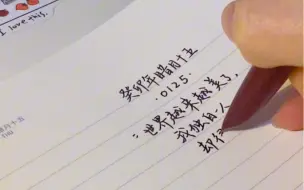 I love this.
癸卯年腊月十五
.0125.
：世界越来越美了，
我独自一人
却仅